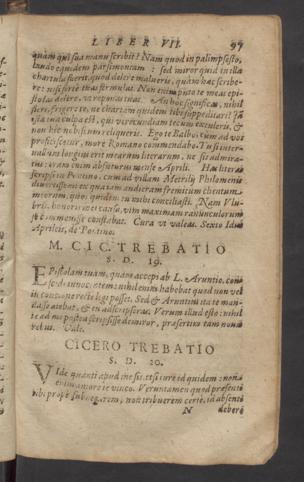 LIBER VII. 97
quàm qui sua manu scribit? Nam quod in palimpsesto,
laudo equidem parsimoniam: sed miror quid in illa
chartula fuerit, quod delere malueris, quàm hæc scribe-
re: nisi fortè tuas formulas. Non enim puto te meas epi-
stolas delere, vt reponas tuas. An hoc significas, nihil
fieri, frigere te, ne chartam quidem tibi suppeditari? Iã
ista tua culpa est, qui verecundiam tecum extuleris, &
non hîc nobiscum reliqueris. Ego te Balbo, cùm ad vos
proficiscetur, more Romano commendabo. Tu si inter-
uallum longius erit mearum literarum, ne sis admira-
tus: eram enim abfuturus mense Aprili. Has literas
scripsi in Pontino, cùm ad villam Metrilij Philemonis
diuertissem: ex qua iam audieram fremitum clientum
meorum, quos quidem tu mihi conciliasti. Nam Vlu-
bris honoris mei causa, vim maximam ranunculorum
se commosse constabat. Cura vt valeas. Sexto Idus
Aprileis, de Pontino.
M. CIC. TREBATIO
S. D. 19.
EPistolam tuam, quam accepi ab L. Aruntio, conscidi
innocentem: nihil enim habebat quod non vel
in concione rectè legi posset. Sed & Aruntius ita te man-
dasse aiebat, & tu adscripseras. Verum illud esto: nihil
te ad me postea scripsisse demiror, præsertim tam nouis
rebus. Vale.
CICERO TREBATIO
S. D. 20.
VIde quanti apud me sis. etsi iure id quidem: non
enim amore te vinco. Veruntamen quod præsenti
tibi propè subnegaram, non tribueram certè, id absenti
N debere